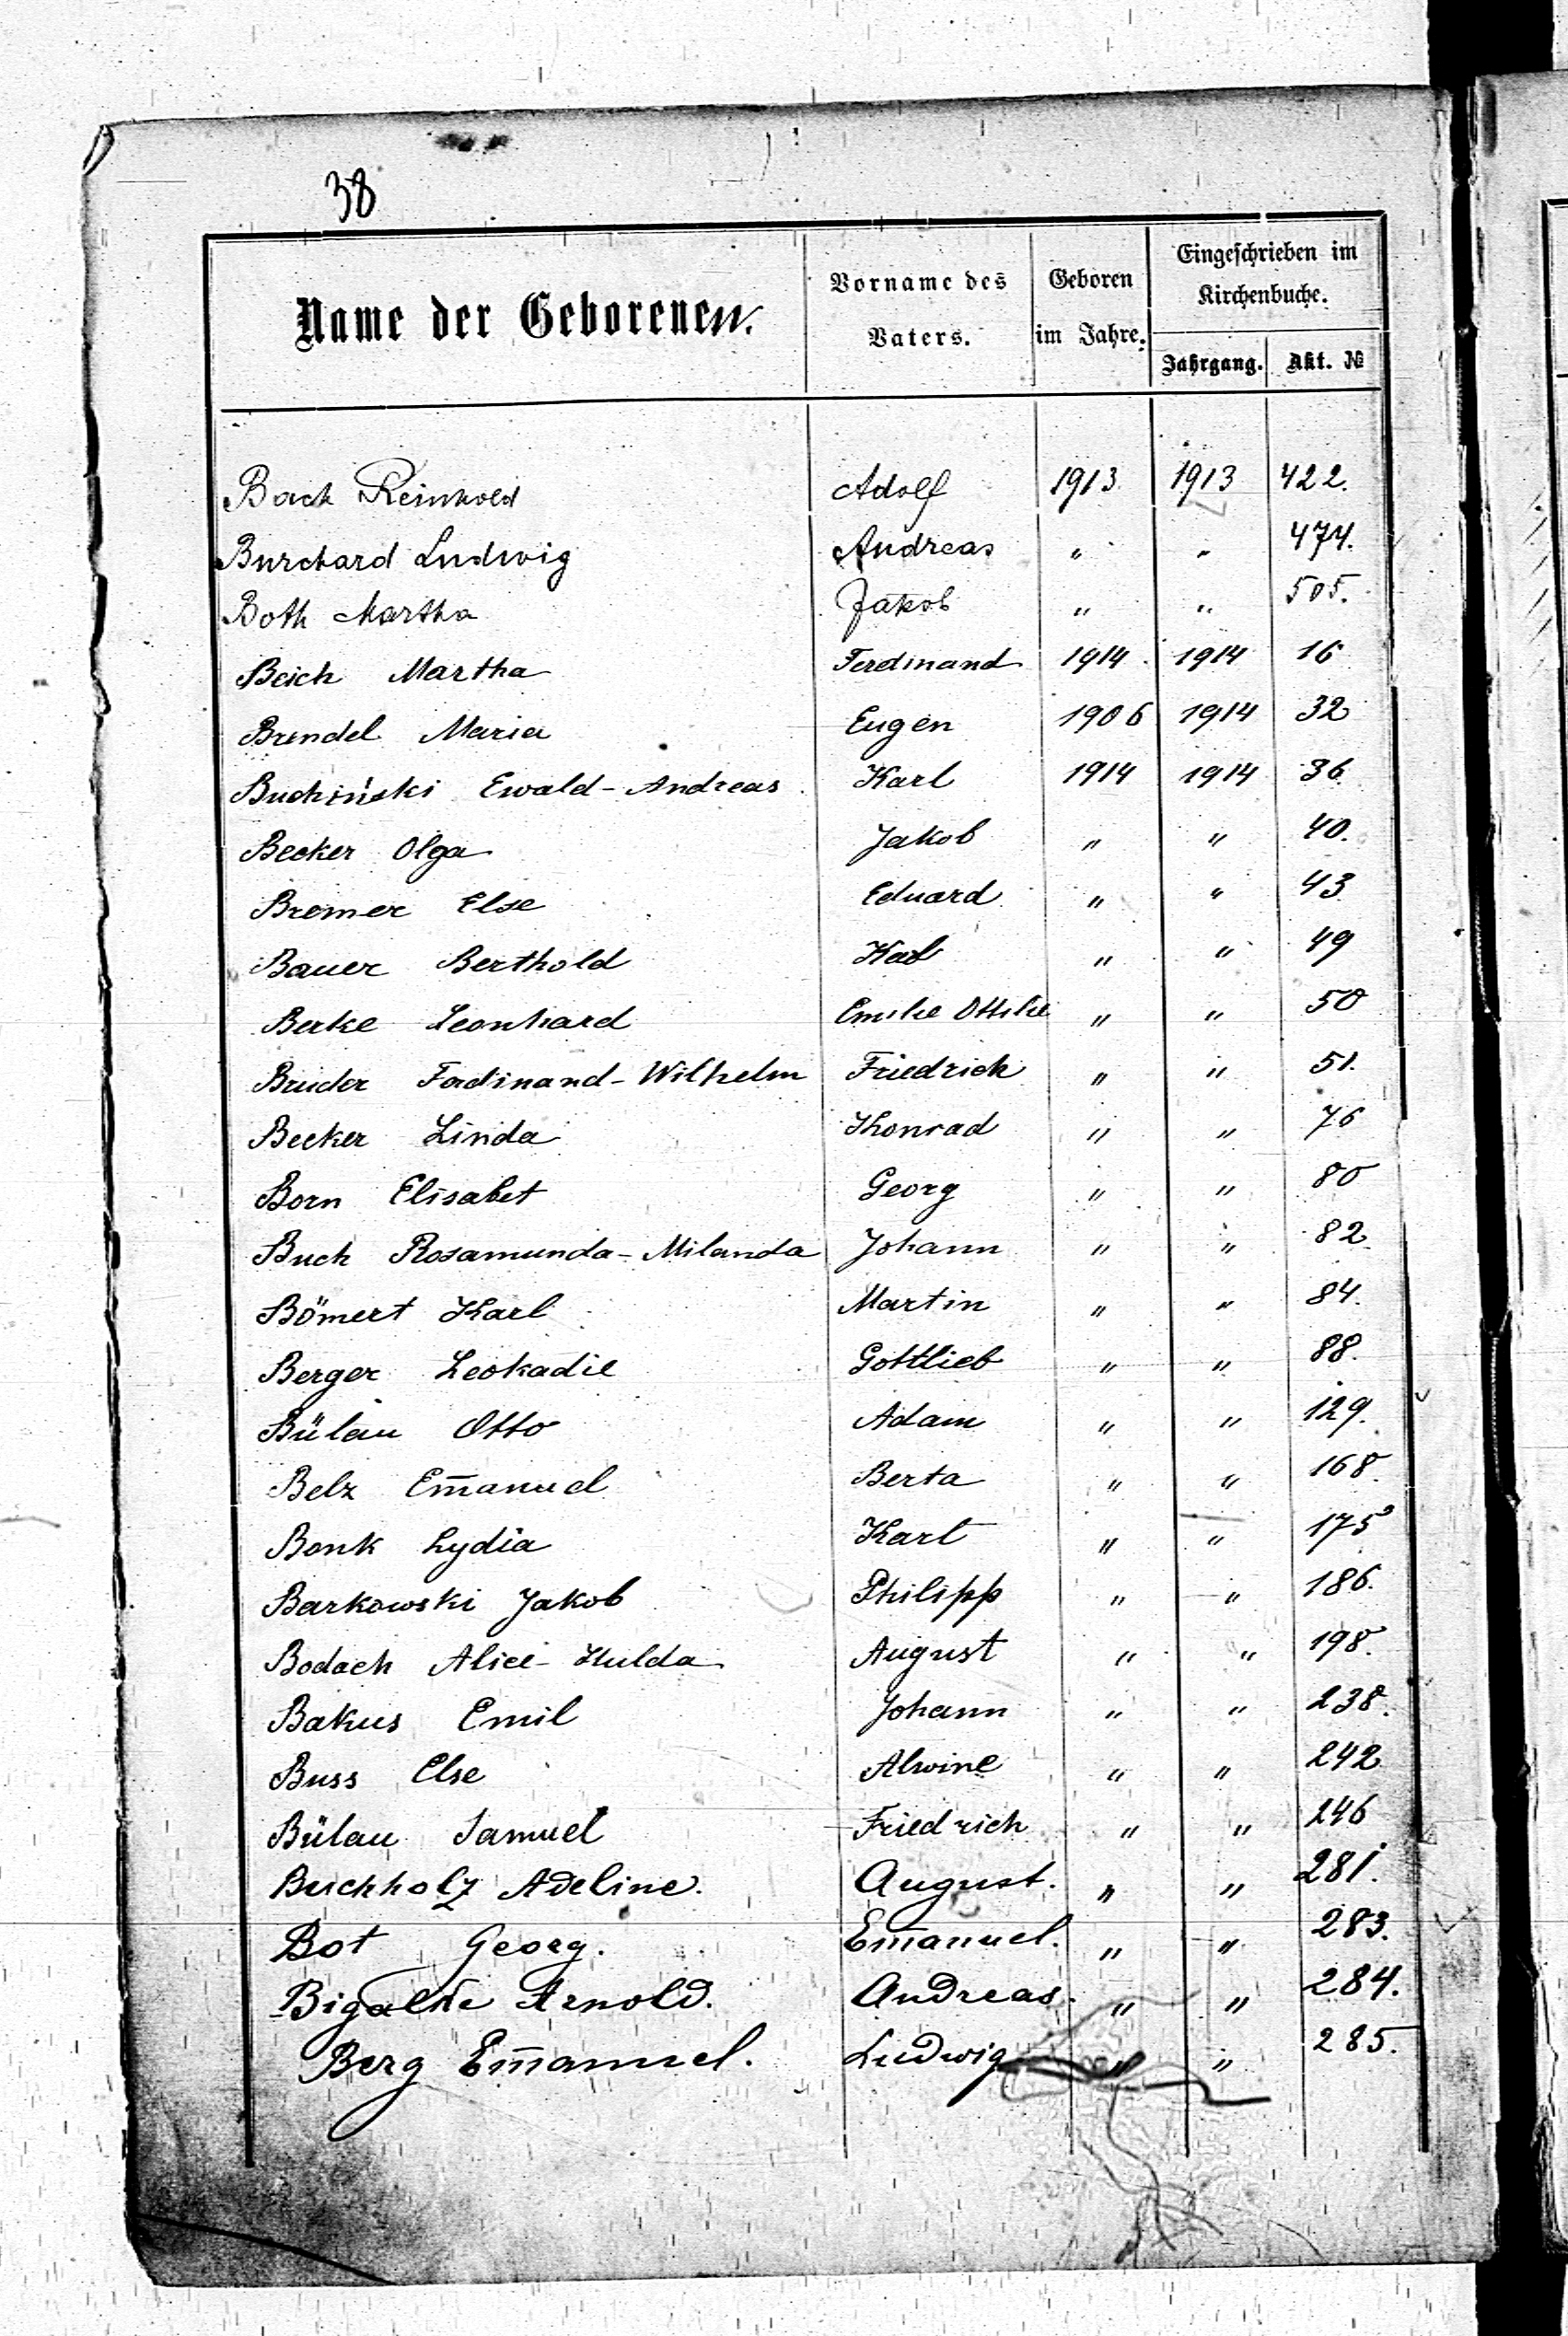 38
Name der Geborenen.
Vorname des Vaters.
Geboren im Jahre.
Eingeschrieben im Kirchenbuche.
Jahrgang. Akt. №
Bach Reinhold Adolf 1913 1913 422.
Burchard Ludwig Andreas " " 474.
Both Martha Jakob " " 505.
Beich Martha Ferdinand 1914 1914 16
Brendel Maria Eugen 1906 1914 32
Buchiński Ewald-Andreas Karl 1914 1914 36
Becker Olga Jakob " " 40.
Bremer Else Eduard " " 43
Bauer Berthold Karl " " 49
Berke Leonhard Emilie Ottilie " " 50
Bruder Ferdinand-Wilhelm Friedrich " " 51.
Becker Linda Konrad " " 76
Born Elisabet Georg " " 80
Buch Rosamunda-Milanda Johann " " 82.
Bömert Karl Martin " " 84.
Berger Leokadie Gottlieb " " 88.
Bülau Otto Adam " " 129.
Belz Em̅anuel Berta " " 168.
Bonk Lydia Karl " " 175
Barkowski Jakob Philipp " " 186.
Bodach Alice-Hulda August " " 198.
Bakus Emil Johann " " 238.
Buss Else Alwine " " 242
Bülau Samuel Friedrich " " 246
Buchholz Adeline. August. " " 281.
Bot Georg. Em̅anuel. " " 283.
Bigalke Arnold. Andreas. " " 284.
Berg Em̅anuel. Ludwig " " 285.